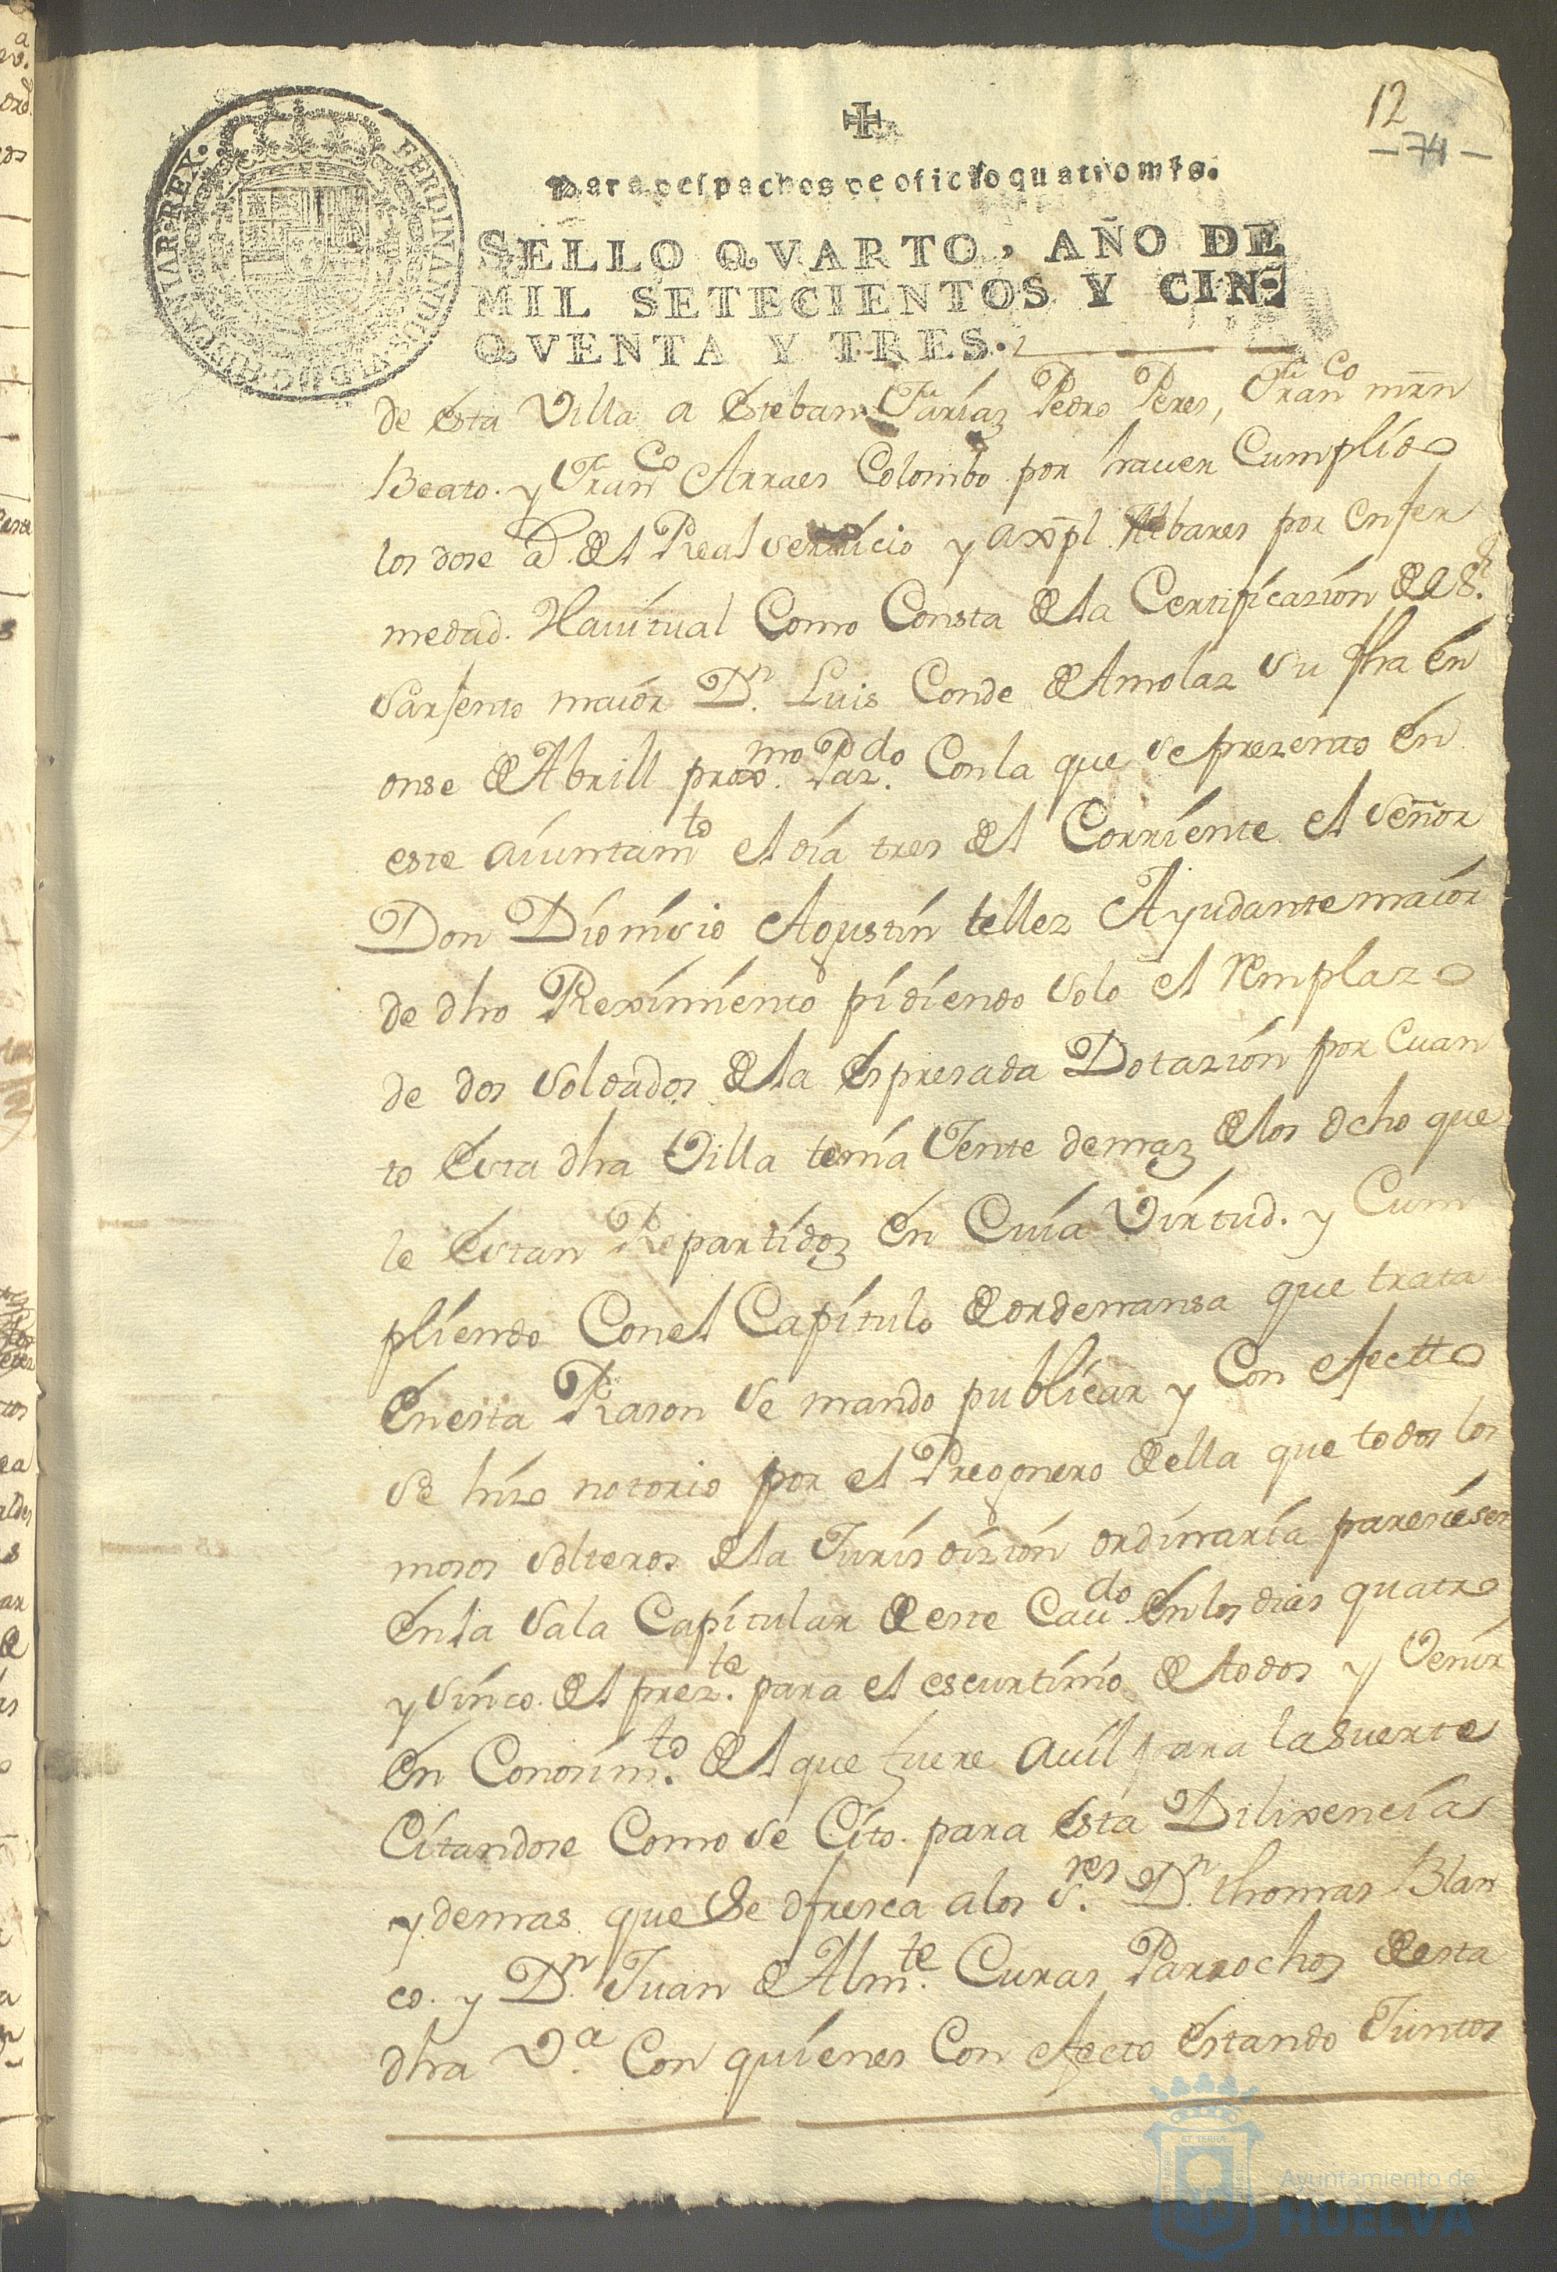 12
- 74 -
Para despachos de oficio quatro mrs.
SELLO QVARTO, AÑO DE
MIL SETECIENTOS Y CIN-
QVENTA Y TRES.
FERDINANDUS VI D G HISPANIAR REX
de esta Villa a Esteban Farias Pedro Peres, Franco mrn
Beato. y Franco Arraes Colombo por hauer Cumplido
los dose ad. del Real servicio y Albares por enfer
medad. Hauitual Como Consta de la Certificazion del Sr.
Sarjento maior Dn. Luis Conde de Amolaz su fha en
onse de Abrill proxmo. Pazdo. Conla que se prezento en
este aiuntamto el dia tres del Corriente el señor
Don Dionisio Agustin tellez Ayudante maior
de dho Reximiento pidiendo solo el remplazo
de dos soldados de la espresada Dotazion por cuan
to esta dha Villa tenia Jente demaz de los ocho que
le estan Repartidoz en Cuia Virtud. y Cum
pliendo Conel Capitulo de ordenansa que trata
en esta Rason se mando publicar y Con efectto
se hizo notorio por el Pregonero de ella que todos los
mosos solteros de la Jurisdizion ordinaria paresiesen
en la sala Capitular de este Caudo en los dias quatro
y sinco del prezte. para el escurtinio de todos y Venir
en Conosimto. del que fuere auil para la suerte
Citandose Como se Cito. para esta Dilixencia
y demas que se ofresca a los sres. Dn. thomas Blan
co. y Dn. Juan de Almte. Curas Parrochos de esta
dha Va. Con quienes Con efecto estando Juntos
Ayuntamiento de
HUELVA